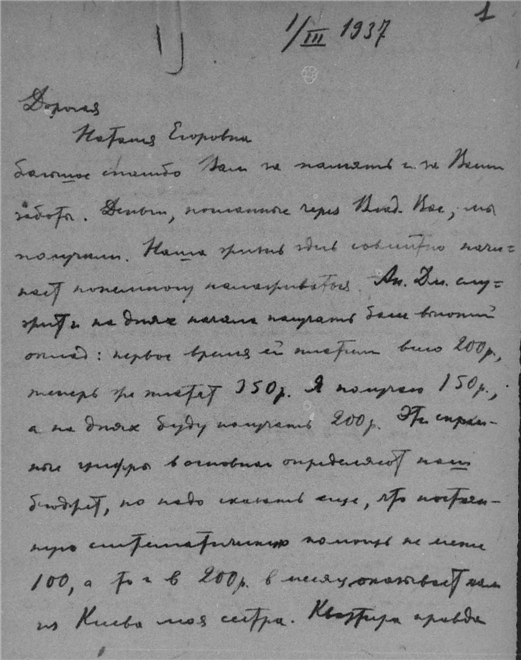 1/III 1937
1
Дорогая
Наталия Егоровна
большое спасибо Вам за память и за Ваши
заботы. Деньги, посланные через Влад. Вас., мы
получили. Наша жизнь здесь совместно начи-
нает понемногу налаживаться. Ан. Дм. слу-
жит и на днях начала получать более высокий
оклад: первое время ей платили всего 200р.,
теперь же платят 350р. Я получаю 150р.,
а на днях буду получать 200р. Эти скром-
ные цифры в основном определяют наш
бюджет, но надо сказать еще, что постоян-
ную систематическую помощь не менее
100, а то и в 200р. в месяц оказывает нам
из Киева моя сестра. Квартира правда